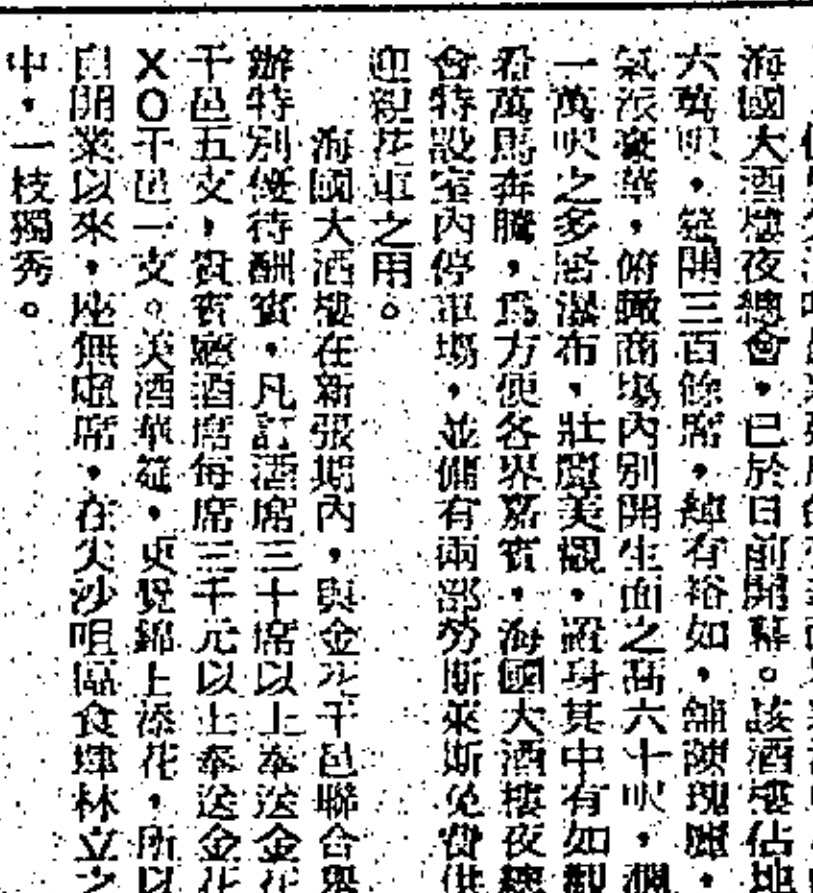 海國大酒樓夜總會，已於日前開幕。該酒樓佔地
六萬呎，筵開三百餘席，綽有裕如，舖陳瑰麗，
氣派豪華，俯瞰商場內別開生面之高六十呎，濶
一萬呎之多層瀑布，壯麗美觀，置身其中有如觀
看萬馬奔騰，爲方便各界嘉賓，海國大酒樓夜總
會特設室內停車塲，並備有兩部勞斯萊斯免費供
迎親花車之用。
海國大酒樓在新張期內，與金花干邑聯合舉
辦特別優待酬賓，凡訂酒席三十席以上奉送金花
干邑五支，貴賓廳酒席每席三千元以上奉送金花
XO干邑一支。美酒華筵，更覺錦上添花，所以
自開業以來，座無虛席，在尖沙咀區食肆林立之
中，一枝獨秀。